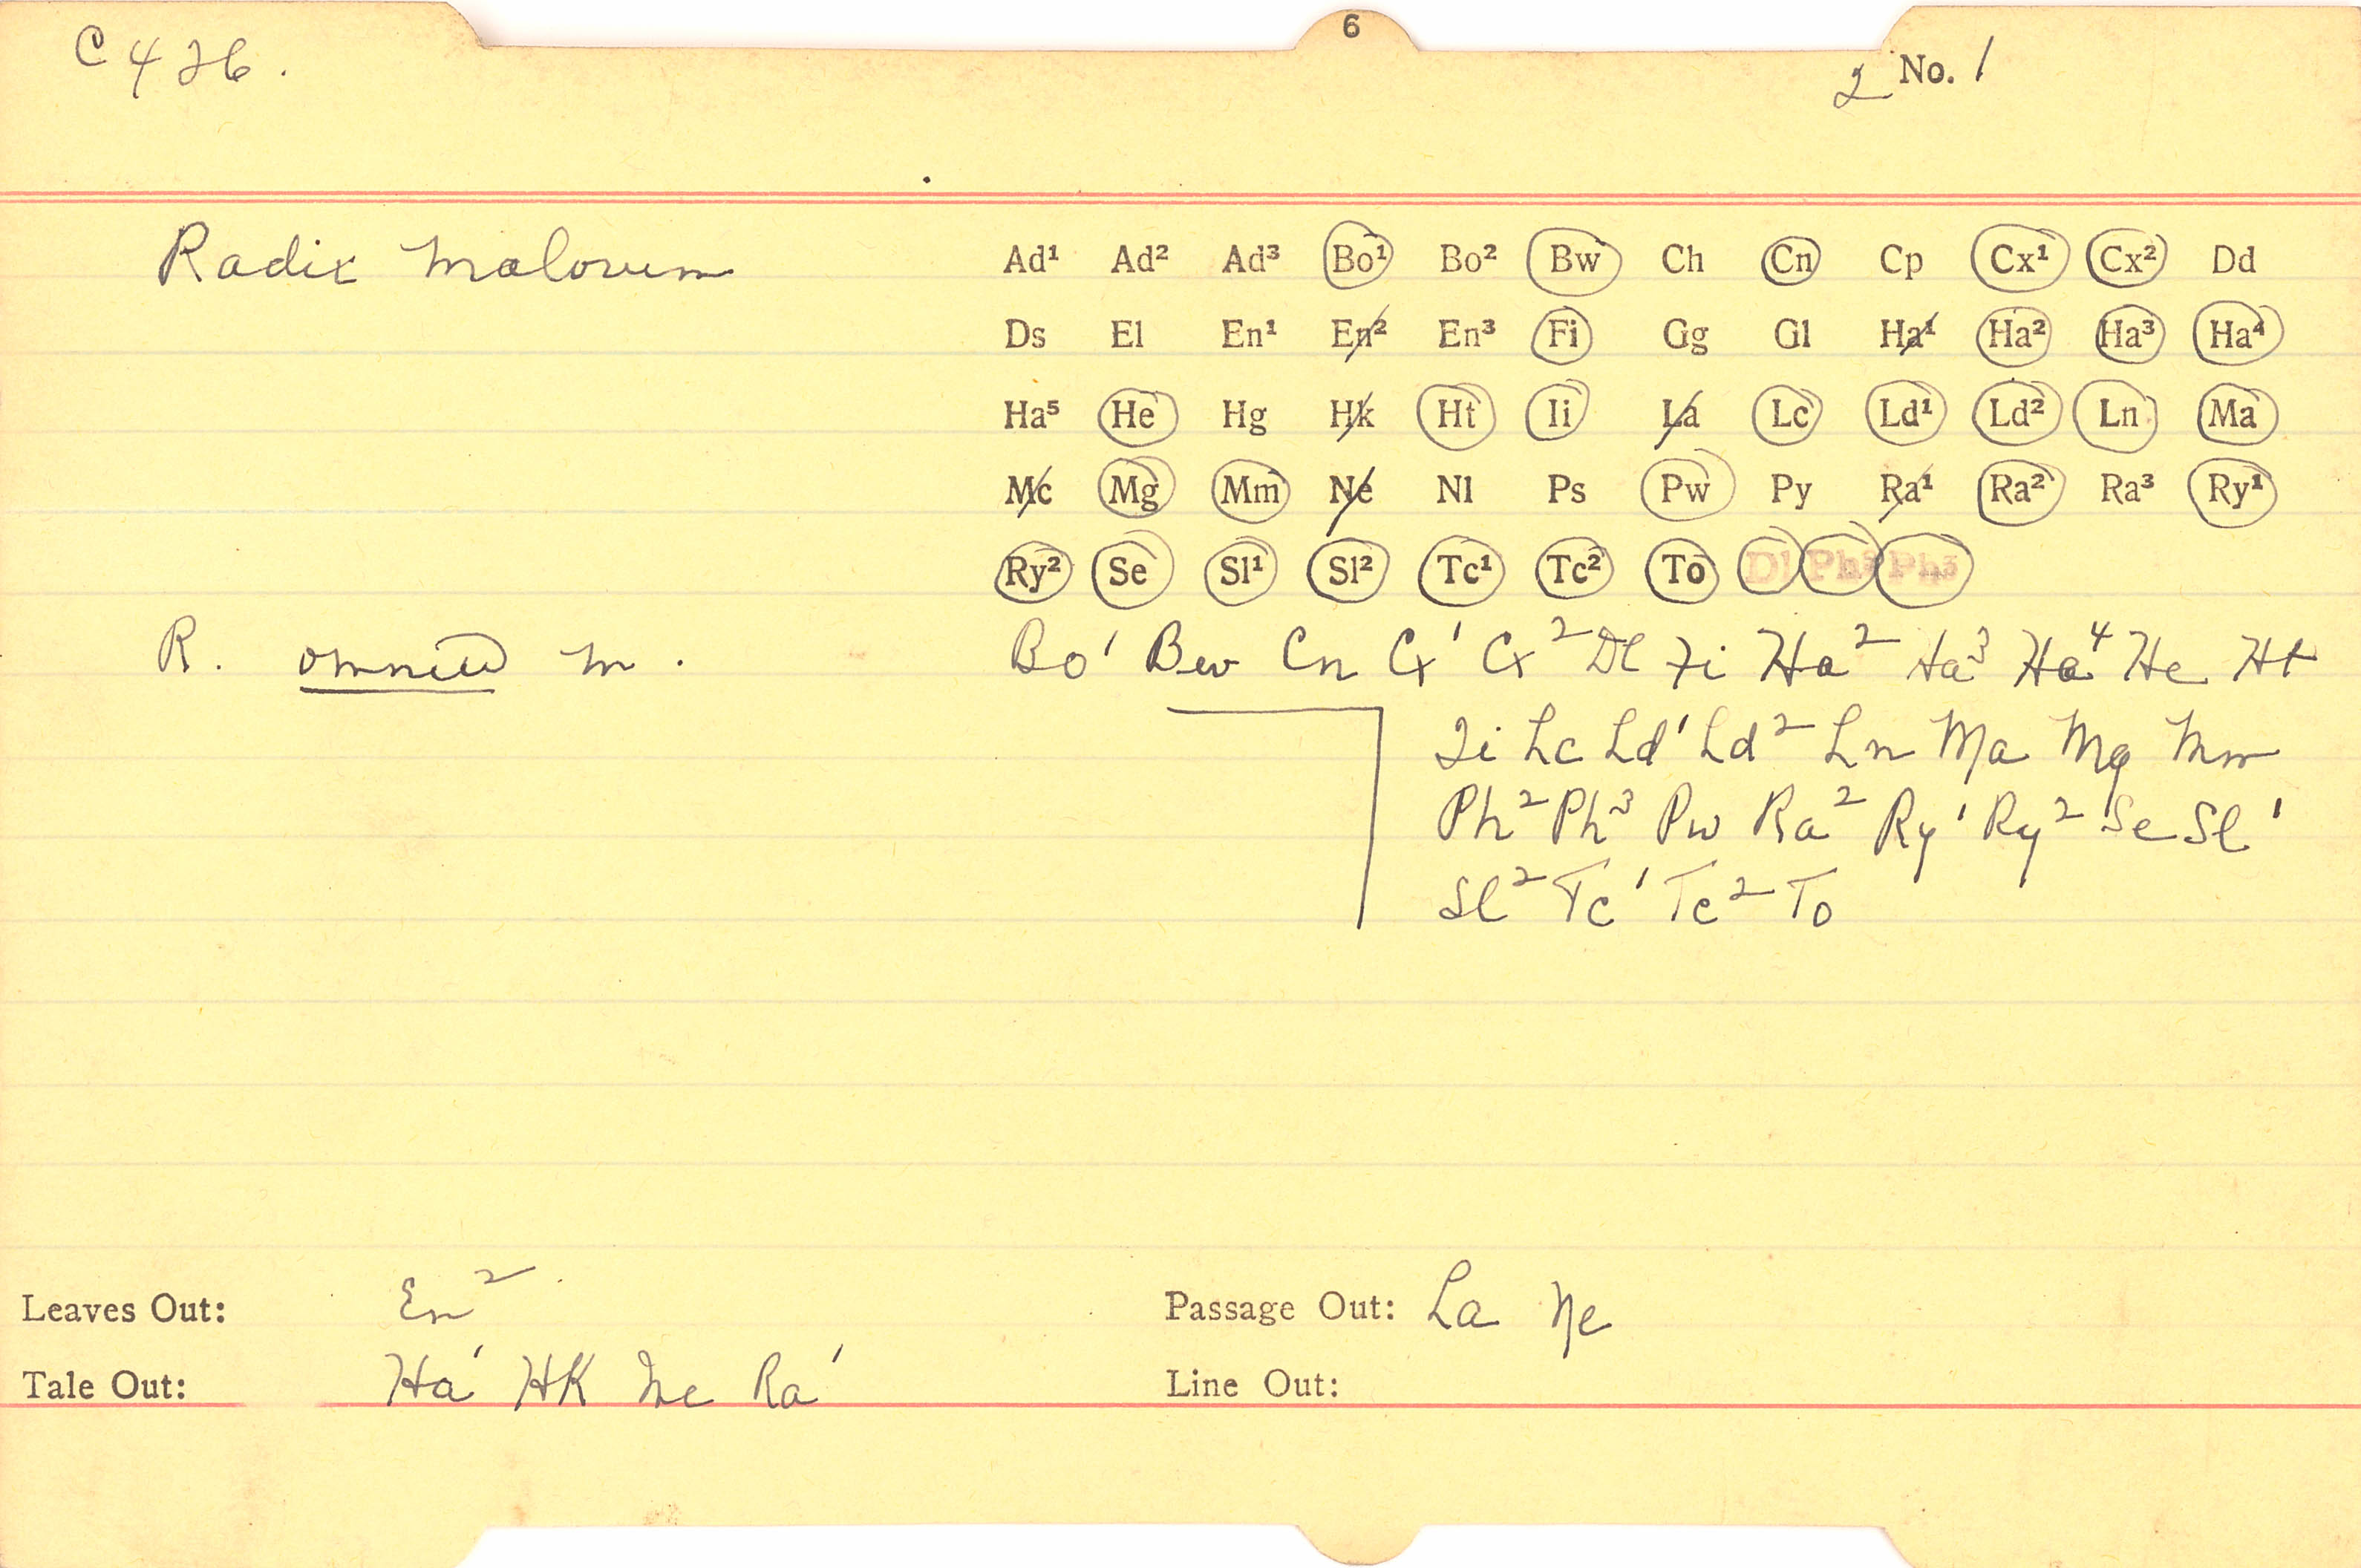 6
C 426.
2 No. 1
Radix malorum
Ad¹ Ad² Ad³ Bo¹ Bo² Bw Ch Cn Cp Cx¹ Cx² Dd
Ds El En¹ En² En³ Fi Gg Gl Ha¹ Ha² Ha³ Ha⁴
Ha⁵ He Hg Hk Ht Ii La Lc Ld¹ Ld² Ln Ma
Mc Mg Mm Ne Nl Ps Pw Py Ra¹ Ra² Ra³ Ry¹
Ry² Se Sl¹ Sl² Tc¹ Tc² To Dl Ph² Ph³
R. omniū m. Bo¹ Bw Cn Cx¹ Cx² Dl Fi Ha² Ha³ Ha⁴ He Ht
Ii Lc Ld¹ Ld² Ln Ma Mg Mm
Ph² Ph³ Pw Ra² Ry¹ Ry² Se Sl¹
Sl² Tc¹ Tc² To
Leaves Out: En² Passage Out: La Ne
Tale Out: Ha¹ HK Mc Ra¹ Line Out: